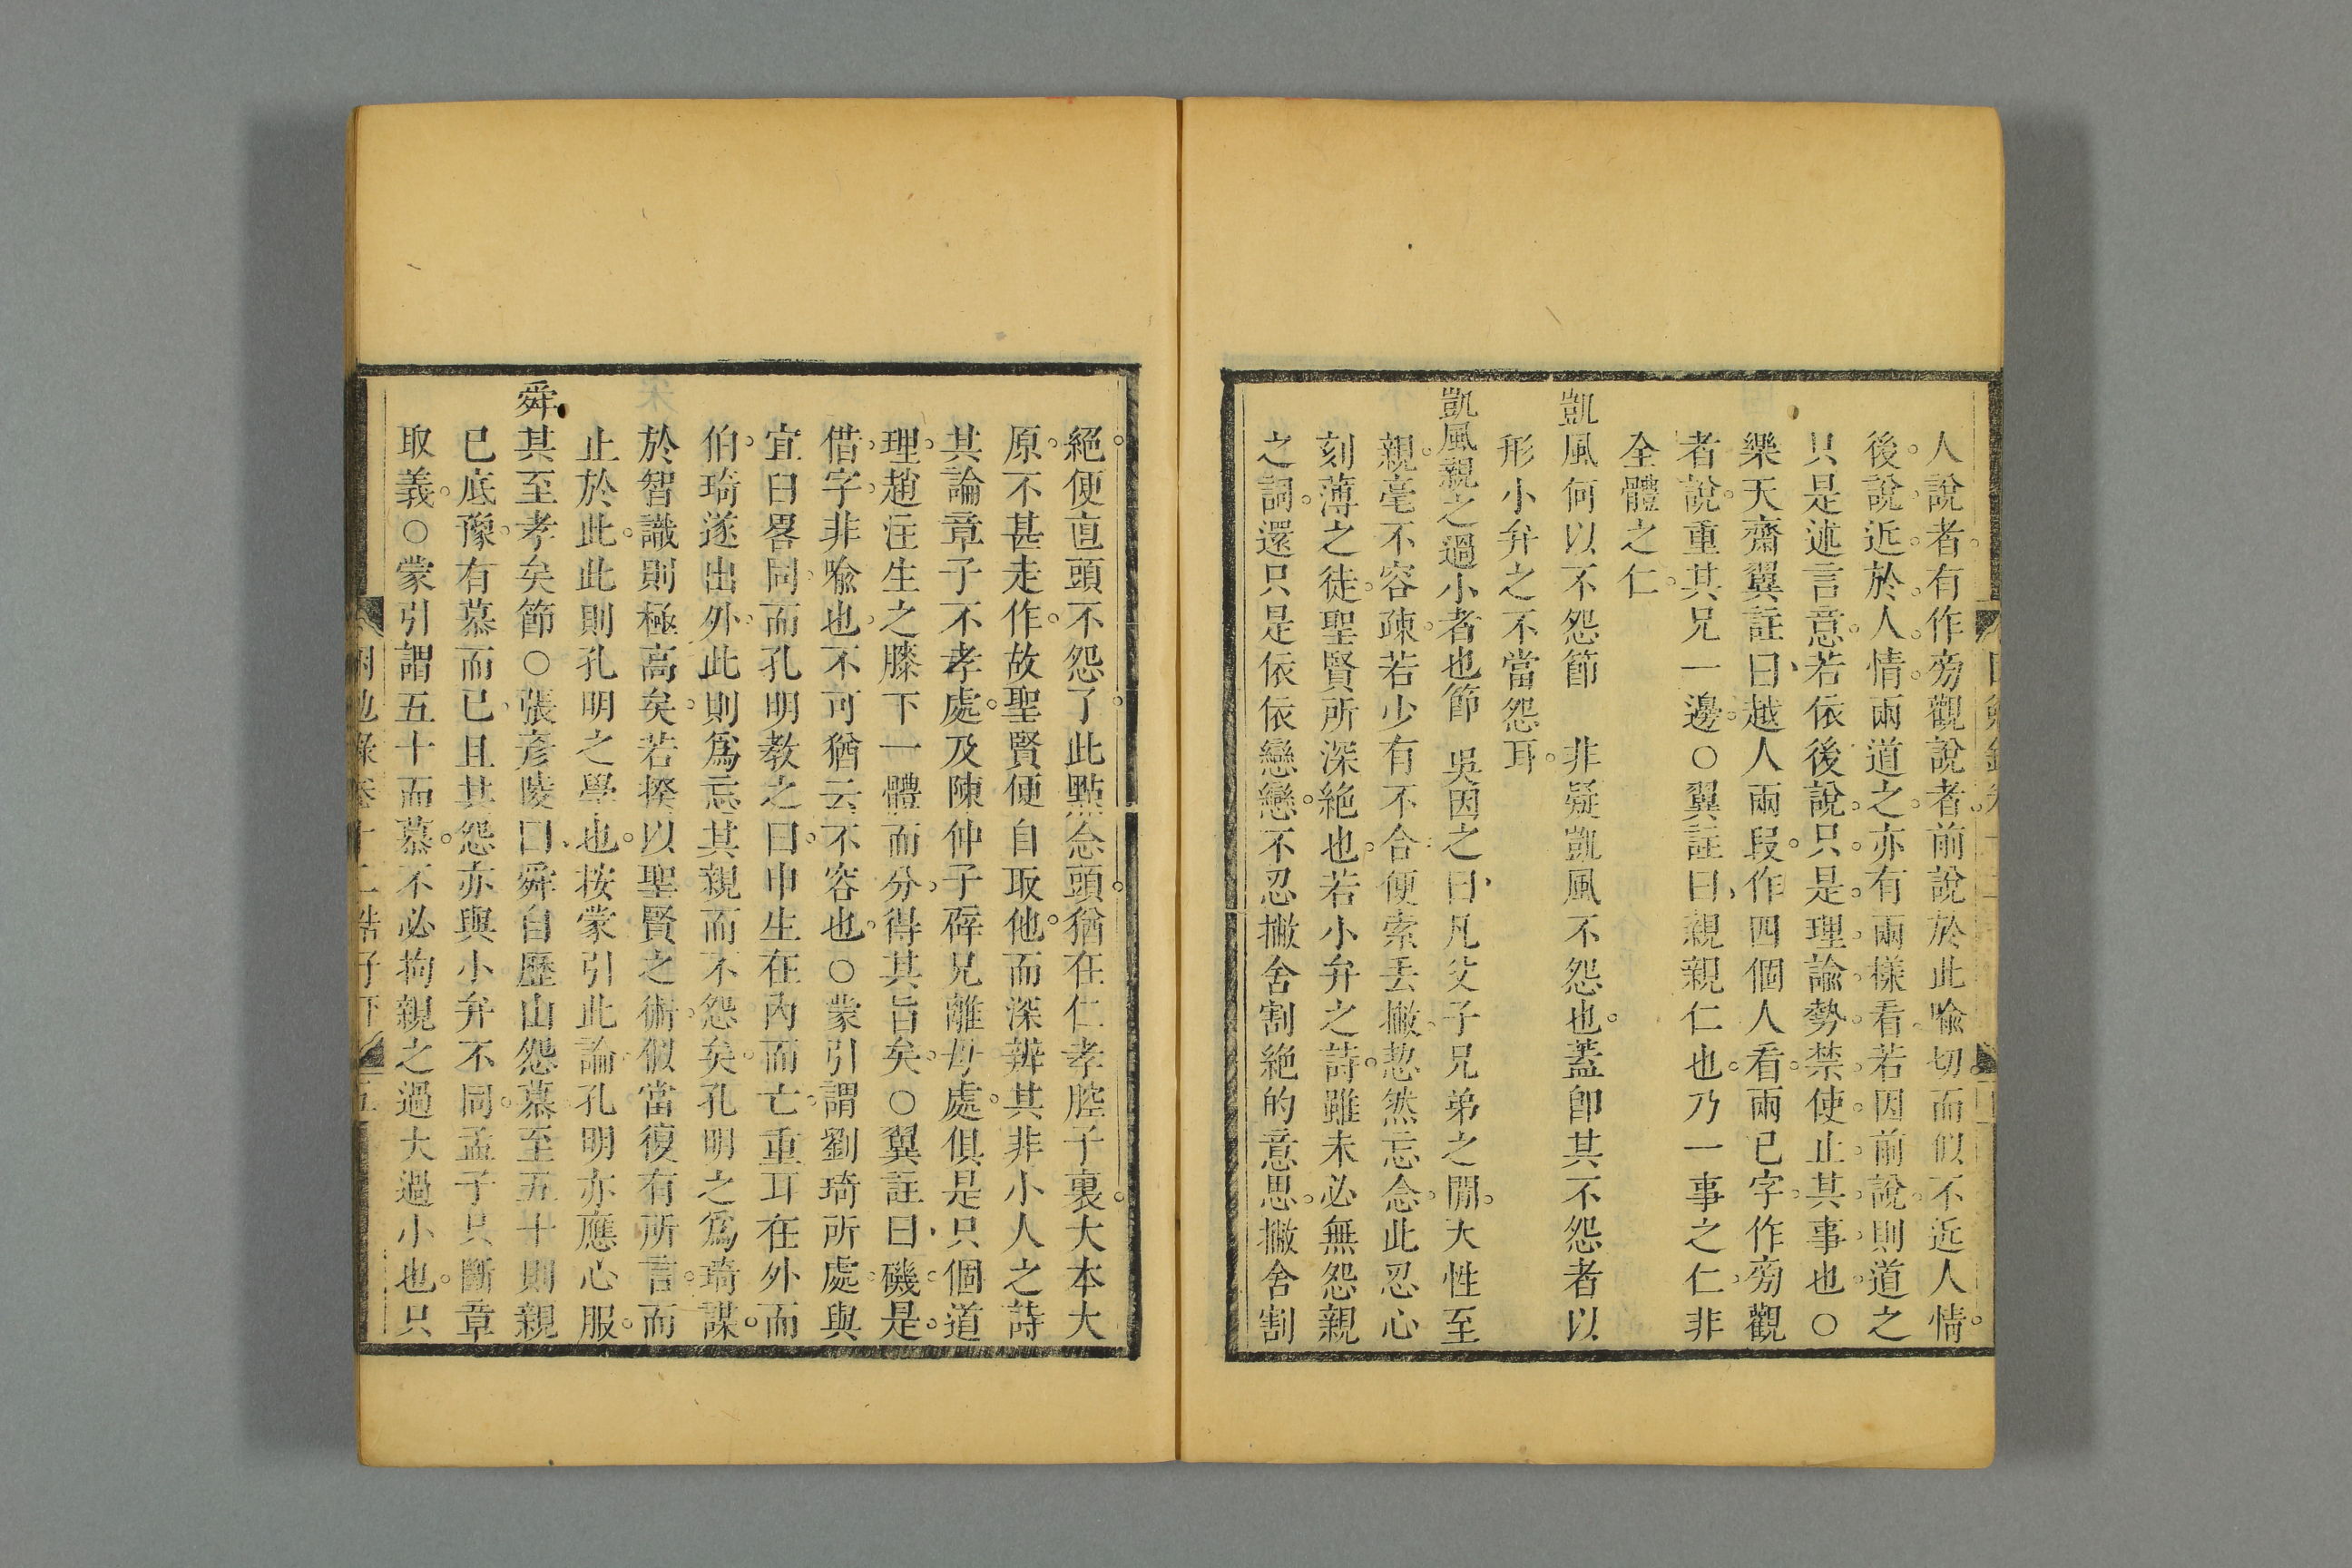 人說者有作旁觀說者前說於此喻切而似不近人情
後說近於人情兩道之亦有兩樣看若因前說則道之
只是述言意若依後說只是理諭勢禁使止其事也○
樂天齋翼註曰越人兩段作四個人看兩已字作旁觀
者說重其兄一邊○翼註曰親親仁也乃一事之仁非
全體之仁
凱風何以不怨節　非疑凱風不怨也蓋卽其不怨者以
形小弁之不當怨耳
凱風親之過小者也節　吳因之曰凡父子兄弟之閒大性至
親毫不容疎若少有不合便索丟撇恝然忘念此忍心
刻薄之徒聖賢所深絶也若小弁之詩雖未必無怨親
之詞還只是依依戀戀不忍撇舍割絶的意思撇舍割
絕便直頭不怨了此點念頭猶在仁孝腔子裏大本大
原不甚走作故聖賢便自取他而深辨其非小人之詩
其論章子不孝處及陳仲子辟兄離母處俱是只個道
理趙注生之膝下一體而分得其旨矣○翼註曰磯是
借字非喻也不可猶云不容也○蒙引謂劉琦所處與
宜臼畧同而孔明教之曰申生在內而亡重耳在外而
伯琦遂出外此則爲忘其親而不怨矣孔明之爲琦謀
於智識則極高矣若揆以聖賢之術似當復有所言而
止於此此則孔明之學也按蒙引此論孔明亦應心服
舜其至孝矣節○張彥陵曰舜自歷山怨慕至五十則親
已底豫有慕而已且其怨亦與小弁不同孟子只斷章
取義○蒙引謂五十而慕不必拘親之過大過小也只